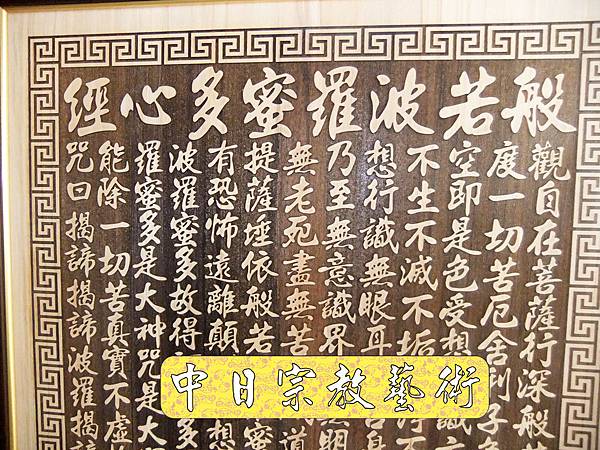 般若波羅蜜多心經
觀自在菩薩行深般
度一切苦厄舍利子色
空即是色受想識亦
不生不滅不垢淨不
想行識無眼耳舌身
乃至無意識界無明
無老死盡無苦道
提薩埵依般若蜜
有恐怖遠離顛想
波羅蜜多故得多
羅蜜多是大神咒是大
能除一切苦真實不虛
咒曰揭諦揭諦波羅揭諦
中日宗教藝術